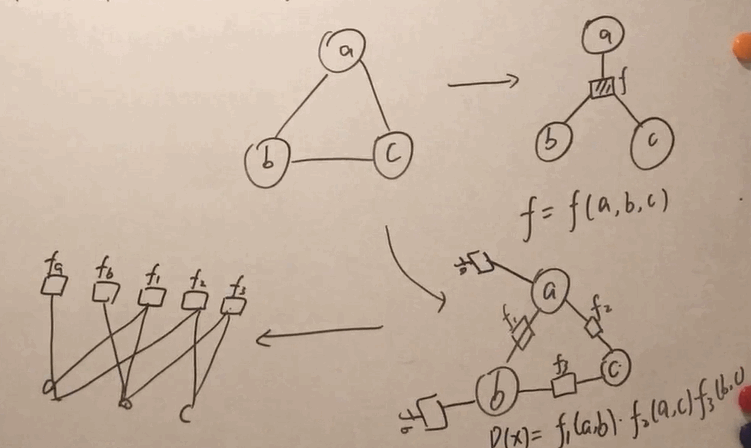 a
b c
a
f
b c
f = f(a,b,c)
fa fb f₁ f₂ f₃
a b c
a
f₁ f₂
b f₃ c
P(x) = f₁(a,b)·f₂(a,c)f₃(b,c)